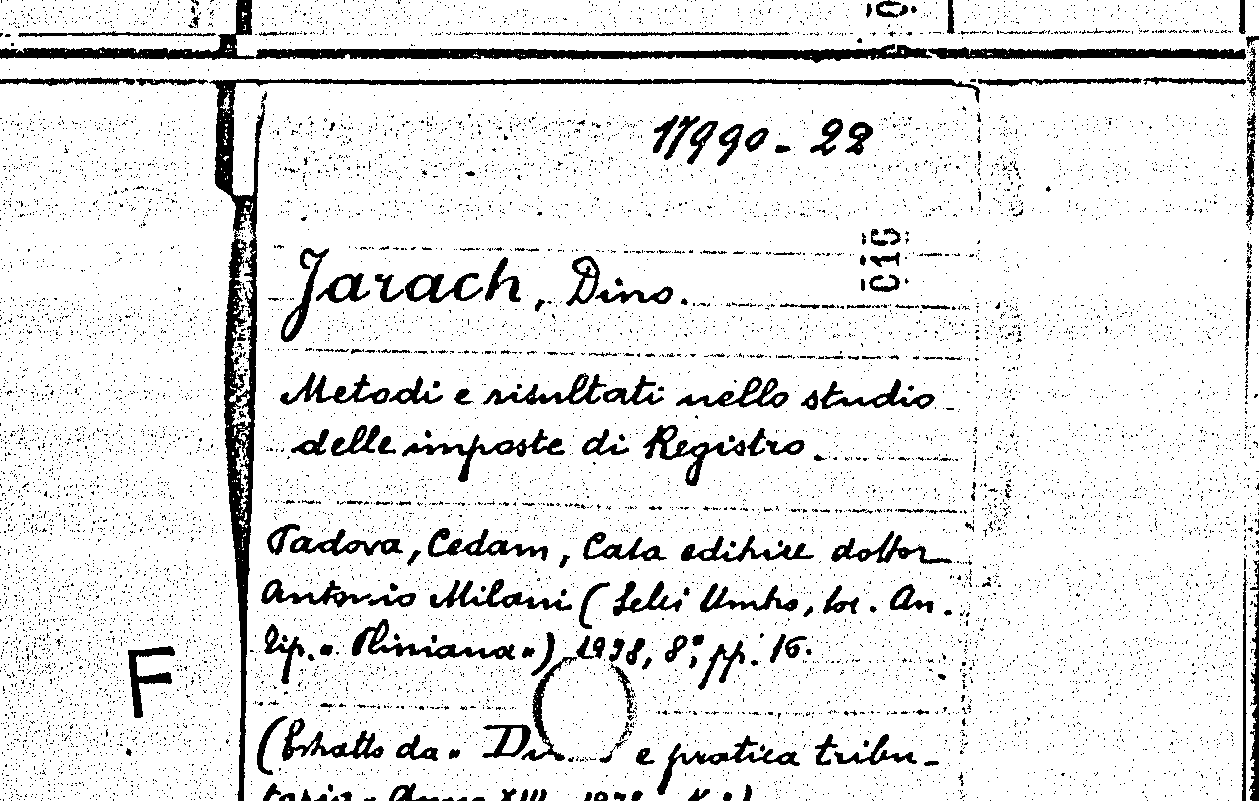 17990-22
C16
Jarach, Dino.
Metodi e risultati nello studio
delle imposte di Registro.
Padova, Cedam, Casa editrice dottor
Antonio Milani (Selci Umbro, Soc. An.
Tip. « Pliniana ») 1938, 8°, pp. 16.
F
(Estratto da « Di e pratica tribu-
taria » Anno XIII, 1938, N.